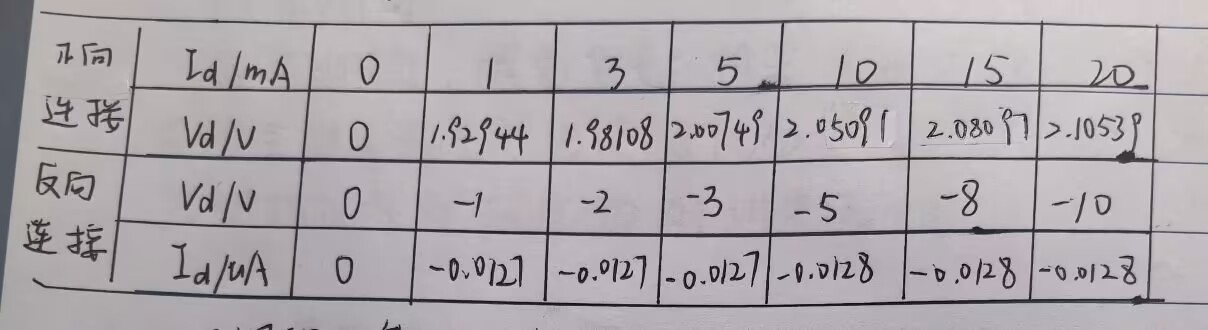 正向 Id/mA 0 1 3 5 10 15 20
连接 Vd/V 0 1.92944 1.98108 2.00749 2.05091 2.08097 2.10539
反向 Vd/V 0 -1 -2 -3 -5 -8 -10
连接 Id/uA 0 -0.0127 -0.0127 -0.0127 -0.0128 -0.0128 -0.0128